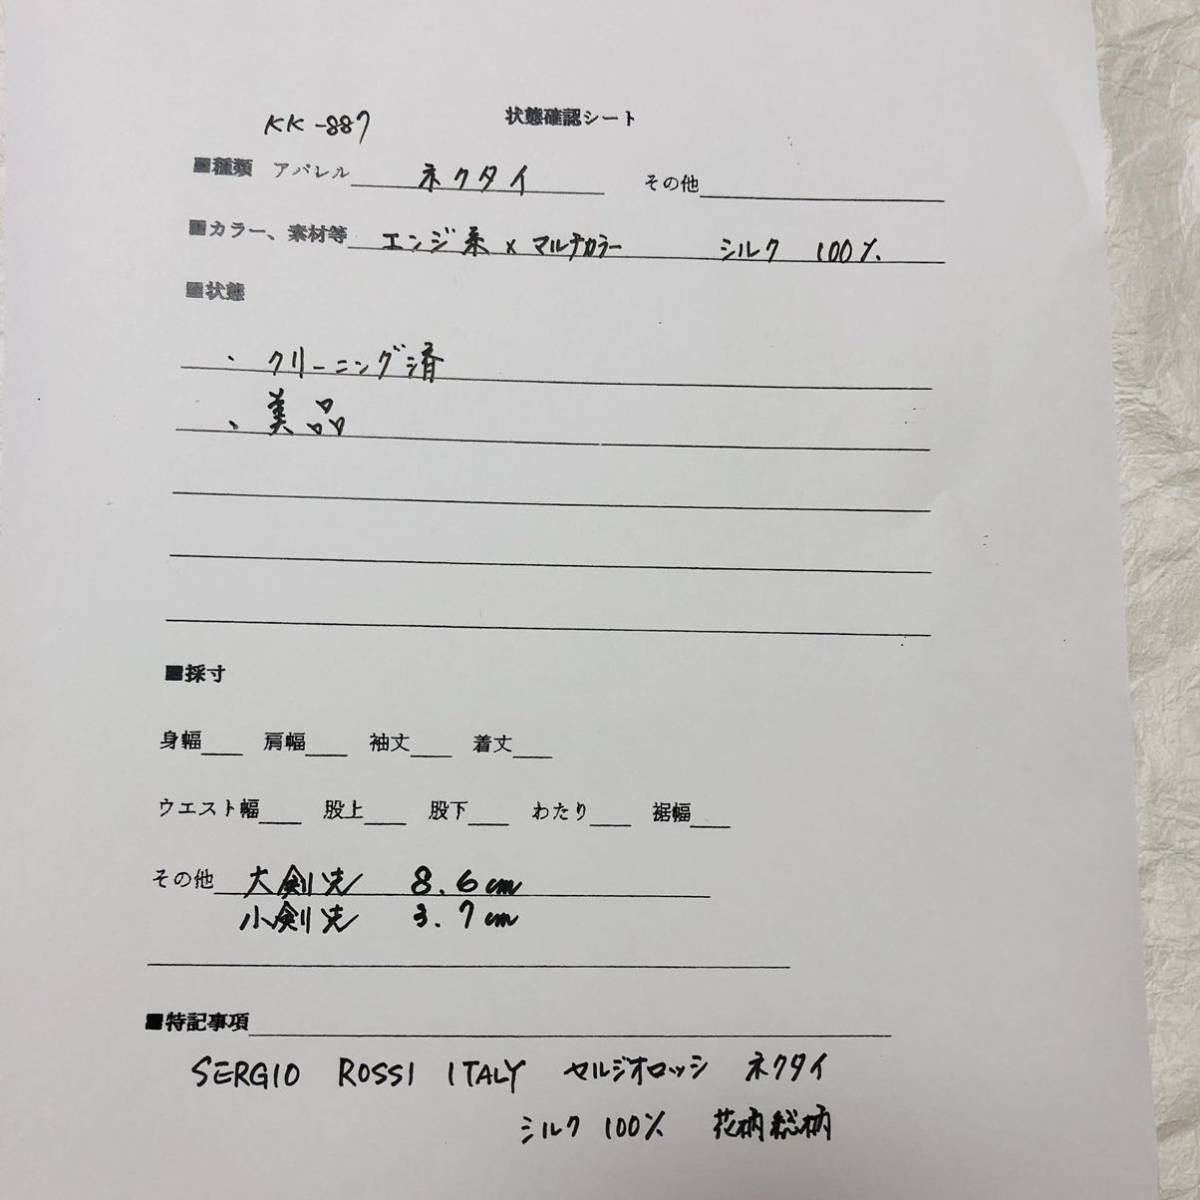 KK-887 状態確認シート
■種類 アパレル ネクタイ その他
■カラー、素材等 エンジ系 x マルチカラー シルク 100%
■状態
、クリーニング済
、美品
■採寸
身幅 肩幅 袖丈 着丈
ウエスト幅 股上 股下 わたり 裾幅
その他 大剣先 8.6cm
小剣先 3.7cm
■特記事項
SERGIO ROSSI ITALY セルジオロッシ ネクタイ
シルク 100% 花柄総柄